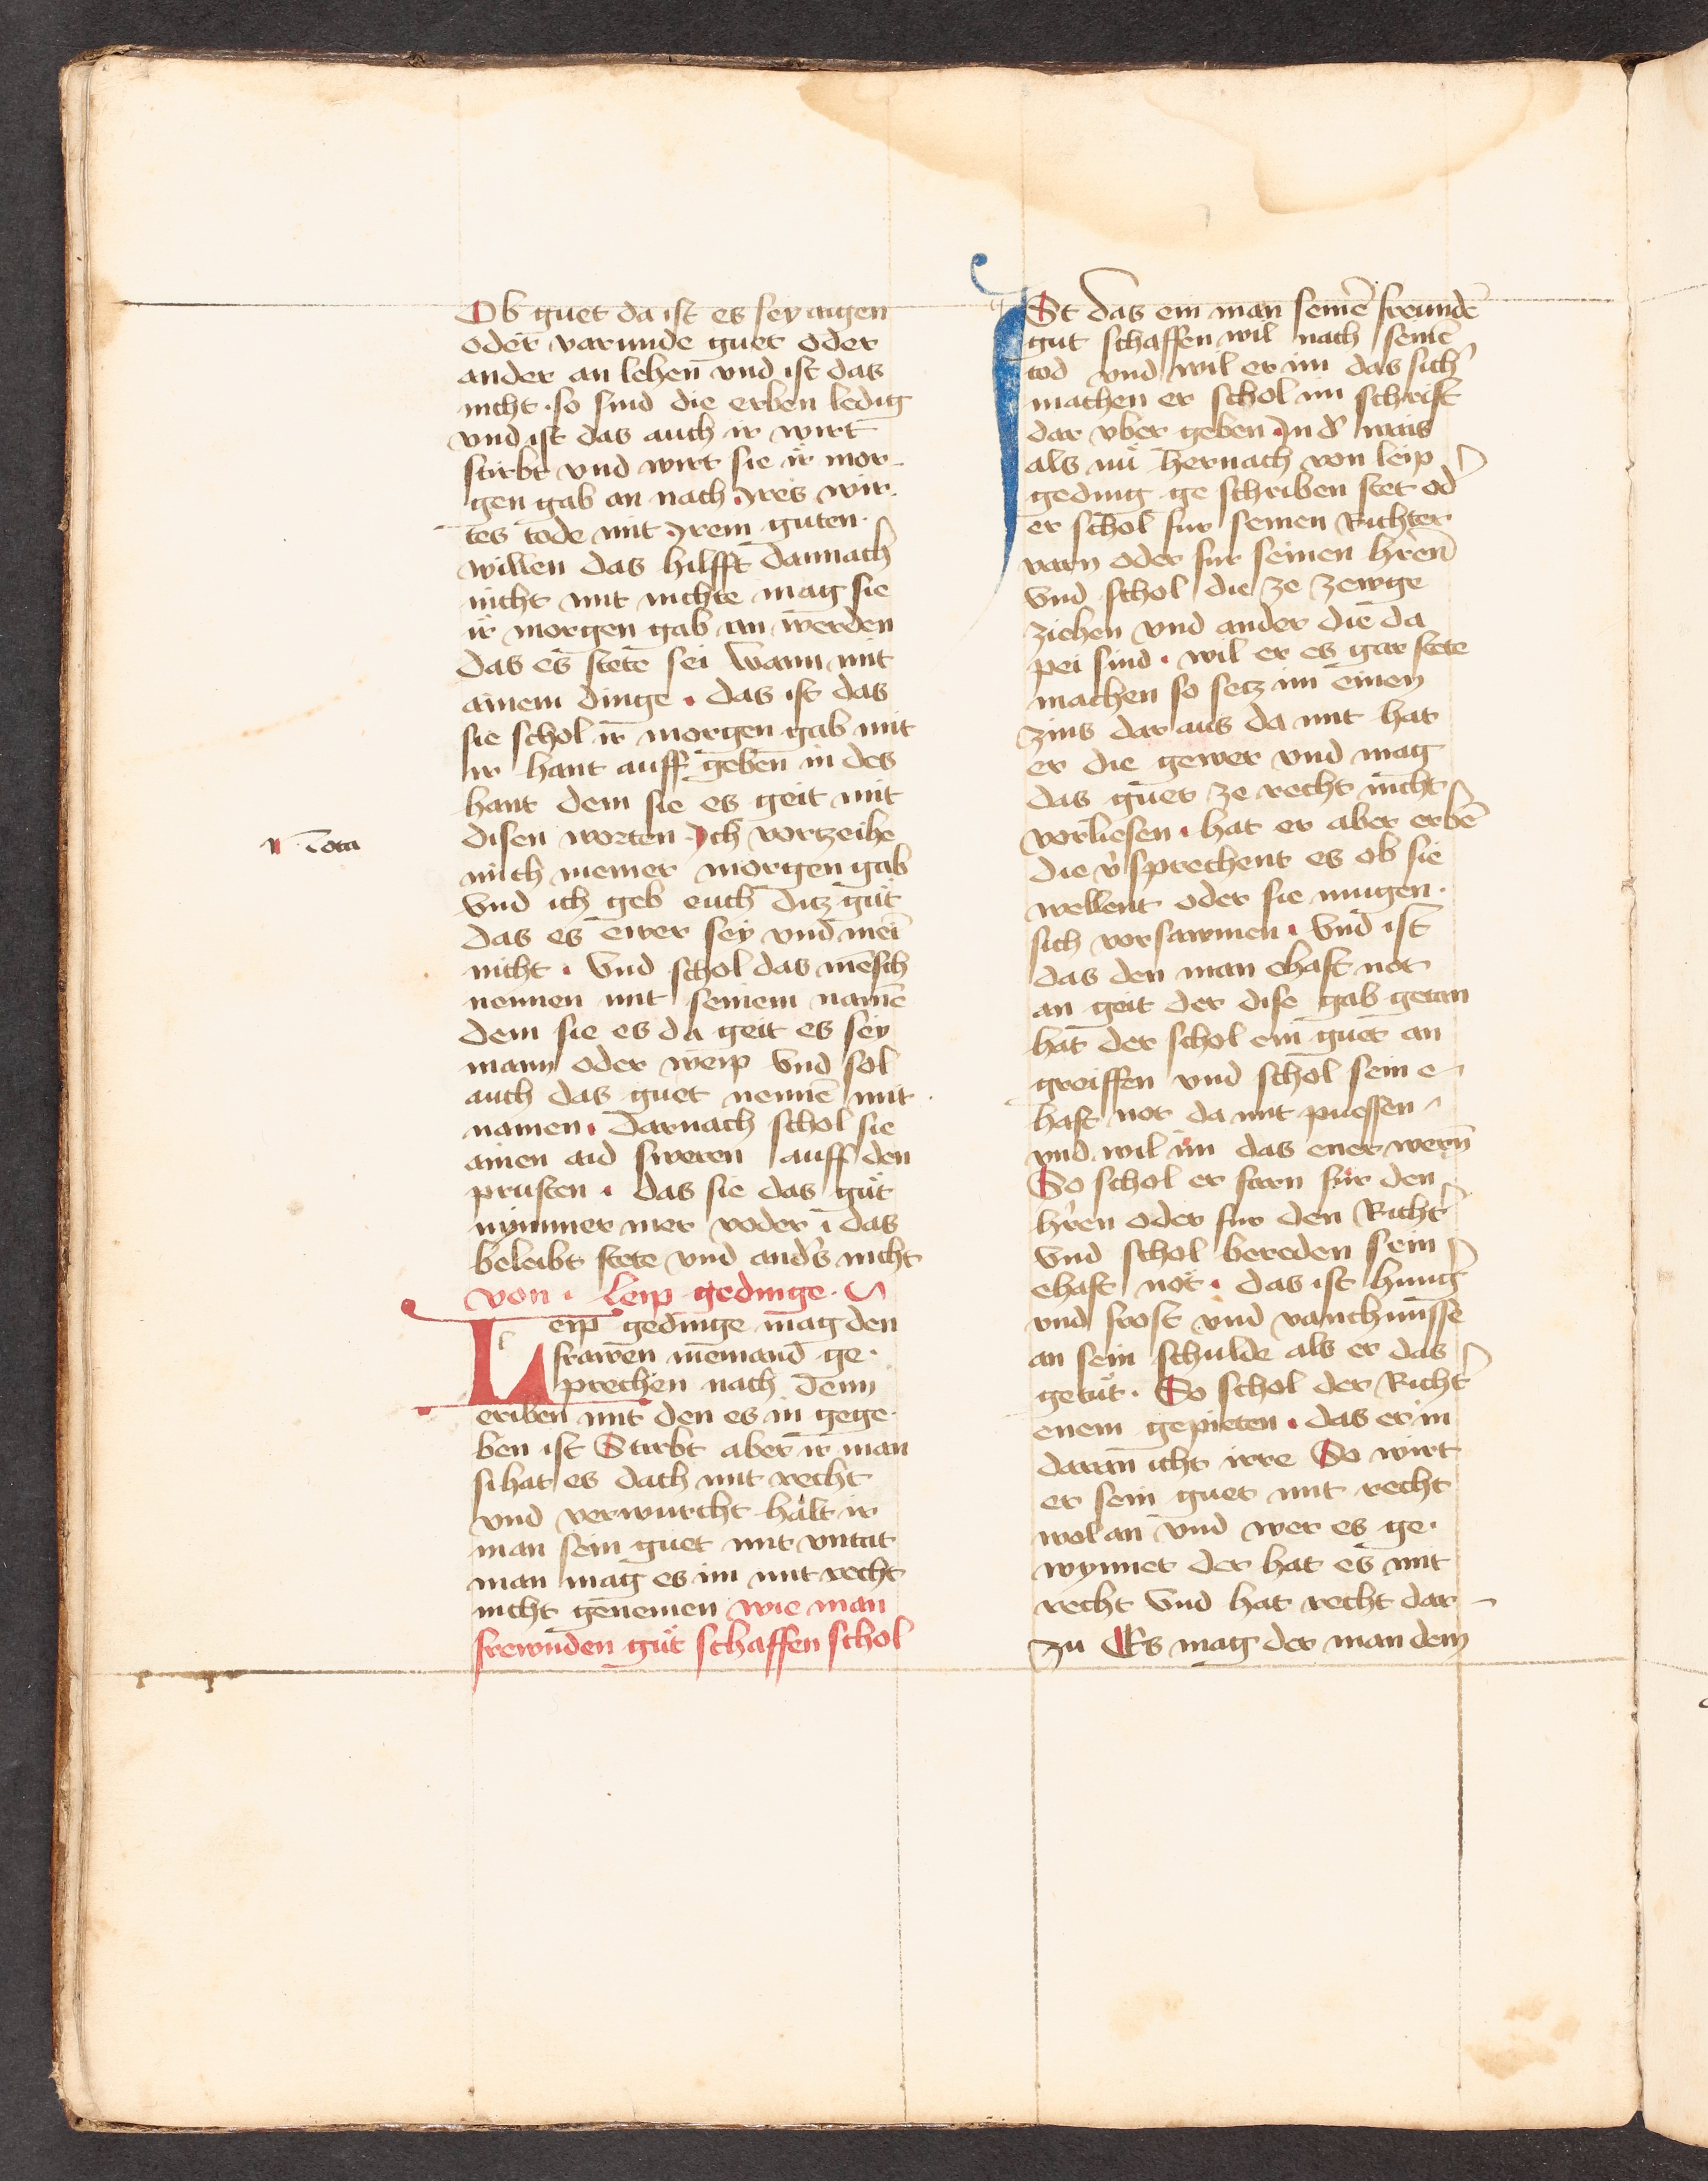 Ob guet da ist es sey aigen
oder varunde guet oder
ander an lehen vnd ist das
nicht · so sind die erben ledig
vnd ist das auch ir wirt
stirbt vnd wirt sie ir mor-
gen gab an nach Jres wir-
tes tode mit Jrem guten
willen das hilfft dannach
nicht mit nichte mag sie
ir morgen gab an werden
das es stete sei wann mit
ainem dinge · das ist das
sie schol ir morgen gab mit
ir hant auff geben in des
hant dem sie es geit mit
Nota
disen worten · Jch vorzeihe
mich meiner morgen gab
vnd ich geb euch ditz gut
das es ewer sey vnd mei
nicht · Vnd schol das mēsch
nennen mit seinem namē
dem sie es da geit es sey
mann oder weip Vnd sol
auch das guet nennē mit
namen · Darnach schol sie
ainen aid sweren auff den
prusten · das sie das gut
nymmer mer voder i das
beleibt stete vnd anders nicht
von · Leip gedinge ·
Leip gedinge mag den
frawen niemand ge-
prechen nach denn
eriben mit den es in gege-
ben ist Stirbt aber ir man
si hat es dach mit recht
vnd verwurcht halt ir
man sein guet mit vntat
man mag es im mit recht
nicht genemen wie man
frewnden gut schaffen schol
Ist das ein man seinē freundē
gut schaffen wil nach seinē
tod vnd wil er im das sich'
machen er schol im schrift
dar vber geben Jn d' wais
als nu hernach von leip
geding ge schriben stet od'
er schol fur seinen Richter
varn oder fur seinen hren
Vnd schol die ze zewge
ziehen vnd ander die da
pei sind · wil er es gar stete
machen so setz im einen
zins dar aus da mit hat
er die gewer vnd mag
das guet ze recht nicht
vorliesen · hat er aber erbē
die v'sprechent es ob sie
wellent oder sie mugen ·
sich vorsawmen · Vnd ist
das den man ehaft not
an geit der dise gab getan
hat der schol ein guet an
greiffen vnd schol sein e-
haft not da mit puessen
vnd wil im das ener wern
So schol er farn fur den
hren oder fur den Richt'
Vnd schol bereden sein
ehaft not · das ist hung'
vnd frost vnd vanchnusse
an sein schulde als er das
getut · So schol der Richt'
enem gepieten · das er in
daran icht irre So wirt
er sein guet mit recht
wol an vnd wer es ge-
wynnet der hat es mit
recht Vnd hat recht dar-
zu Es mag der man dem